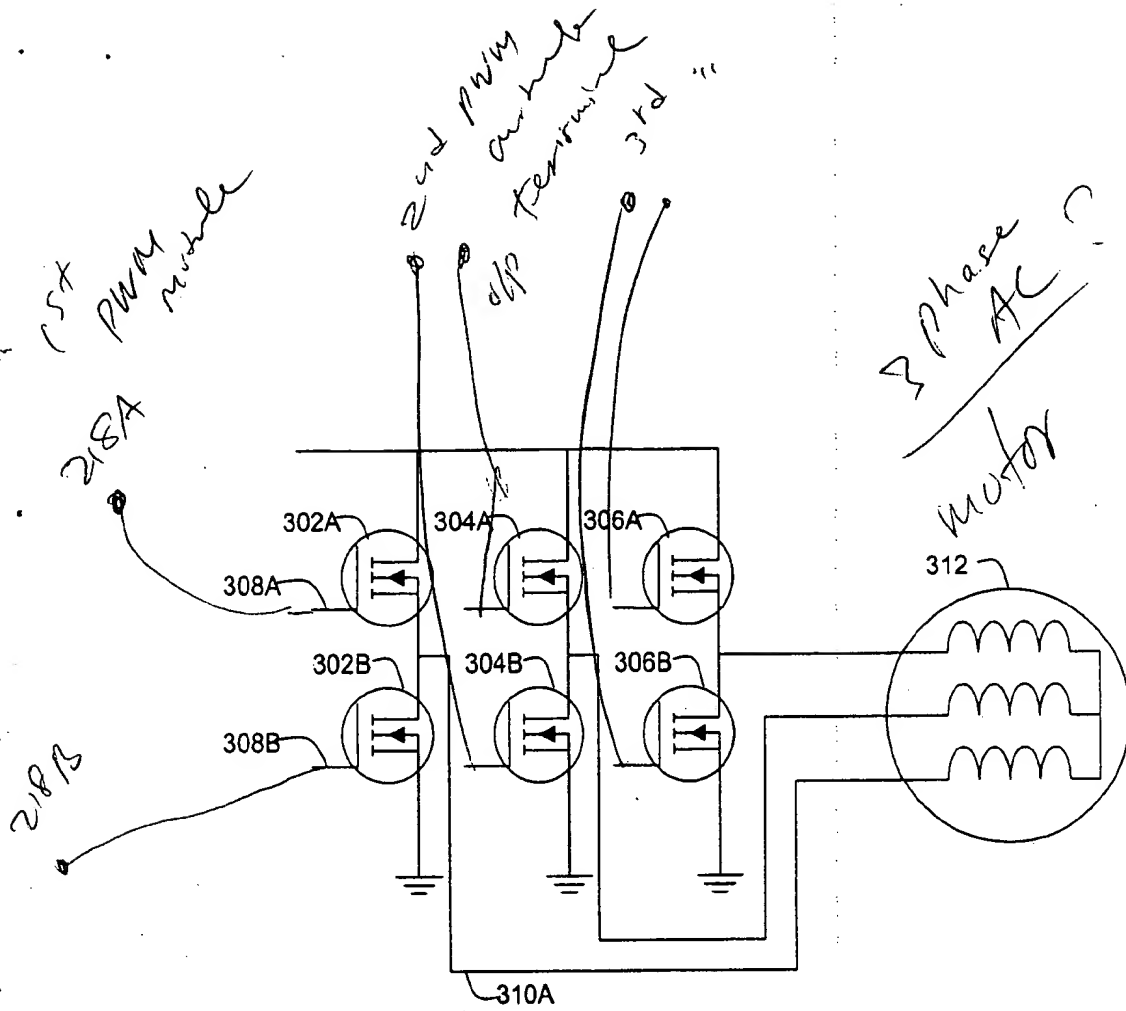 1st
PWM
module
2nd PWM
module
terminal
o/p
3rd "
3 phase
AC ?
motor
218A
302A
304A
306A
312
308A
302B
304B
306B
308B
218B
310A